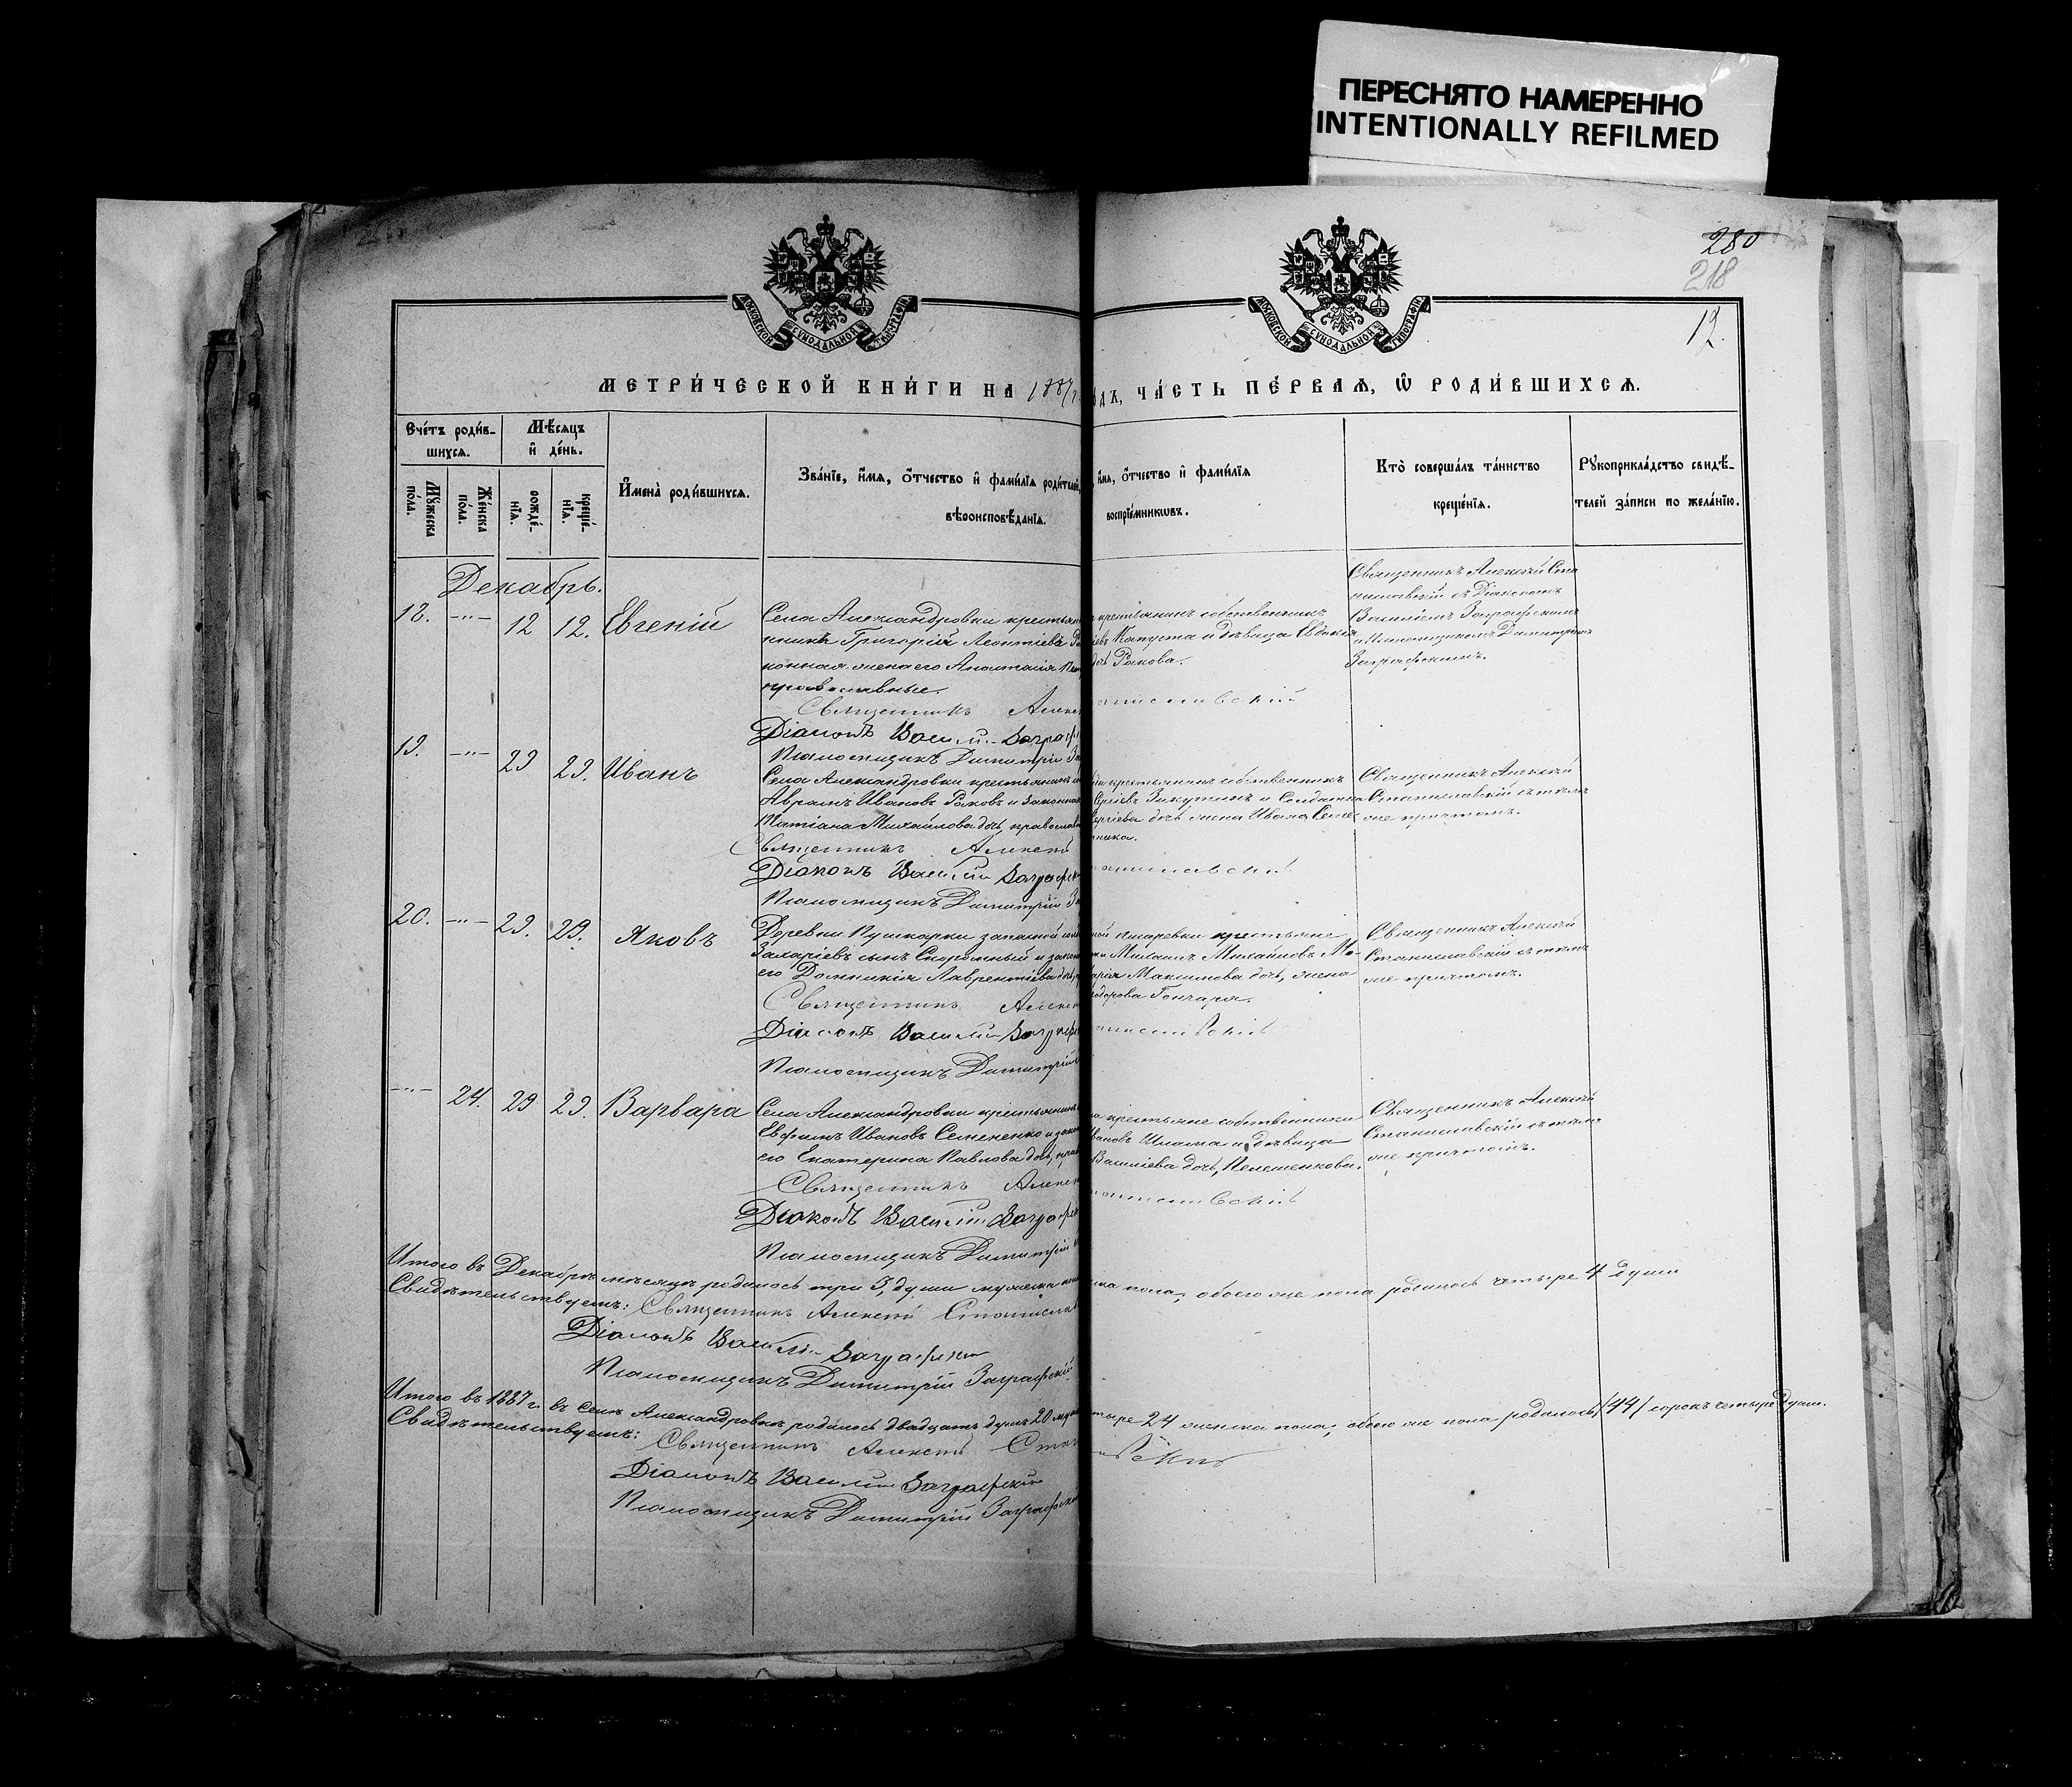 ПЕРЕСНЯТО НАМЕРЕННО
INTENTIONALLY REFILMED
280
218
12.
МОСКОВСКОЙ СѴНОДАЛЬНОЙ ТИПОГРАФІИ
МОСКОВСКОЙ СѴНОДАЛЬНОЙ ТИПОГРАФІИ
МЕТРИ́ЧЕСКОЙ КНИ́ГИ НА 1887 ДЪ, ЧА́СТЬ ПЕ́РВАѦ, Ѽ РОДИ́ВШИХСѦ.
Сче́тъ роди́в-
шихсѧ.
Мѣ́сѧцъ
и҆ де́нь.
Мꙋ́жеска
по́ла.
Же́нска
по́ла.
рожде́-
нїѧ.
креще́-
нїѧ.
И҆мена̀ роди́вшихсѧ.
Зва́нїе, и҆́мѧ, ѻ҆́тчество и҆ фами́лїѧ роди́телей,
вѣроисповѣ́данїѧ.
и҆́мѧ, ѻ҆́тчество и҆ фами́лїѧ
воспрїе́мникѡвъ.
Кто̀ соверша́лъ та́инство
креще́нїѧ.
Рꙋкоприкла́дство свидѣ́-
телей за́писи по жела́нїю.
Декабрь.
18. -"- 12 12. Евгеній
Села Александровки крестьян
Григорій Леонтіевъ
конная жена его Анастасія
православные.
Священникъ Алекс
Діаконъ Василій Заграф
Псаломщикъ Димитрій За
крестьянинъ собственникъ
Капуста и дѣвица Евдокія
дочь Ракова.
аниславскій
Священникъ Алексѣй Ста
ниславскій съ Діакономъ
Василіемъ Заграфскимъ
и Псаломщикомъ Димитріемъ
Заграфскимъ.
19. -"- 29 29. Иванъ
Села Александровки крестьянинъ
Авраамъ Ивановъ Раковъ и законная
Татіана Михайлова дочь, православ
Священникъ Алексѣй
Діаконъ Василій Заграфск
Псаломщикъ Димитрій За
крестьянинъ собственникъ
Сергіевъ Закутинъ и Солдатка
Сергіева дочь жена Ивана
ника.
аниславскій
Священникъ Алексѣй
Станиславскій съ тѣмъ
же причтомъ.
20. -"- 29. 29. Яковъ
Деревни Пушкарки запасной
Захаріевъ сынъ и закон
его Домникія Лаврентіева дочь,
Священникъ Алексѣ
Діаконъ Василій Заграф
Псаломщикъ Димитрій
крестьяне
Михайловъ
Максимова дочь, жена
Ѳедорова Гончара.
аниславскій
Священникъ Алексѣй
Станиславскій съ тѣмъ
же причтомъ.
-"- 24. 29 29. Варвара
Села Александровки крестьянинъ
Евфимъ Ивановъ Семененко и закон
его Екатерина Павлова дочь, прав
Священникъ Алексѣ
Діаконъ Василій Заграфс
Псаломщикъ Димитрій
крестьяне собственники
Ивановъ и дѣвица
Василіева дочь,
аниславскій
Священникъ Алексѣй
Станиславскій съ тѣмъ
же причтомъ.
Итого въ Декабрѣ мѣсяцѣ родилось три 3, души мужеска пола ска пола, обоего же пола родилось четыре 4 души
Свидѣтельствуемъ: Священникъ Алексѣй Станислав
Діаконъ Василій Заграфскій
Псаломщикъ Димитрій Заграфскій
Итого въ 1887 г. въ селѣ Александровкѣ родилось двадцать душъ 20 муж тыре 24 женска пола, обоего же пола родилось /44/ сорокъ четыре души.
Свидѣтельствуемъ: Священникъ Алексѣй Стан вскій
Діаконъ Василій Заграфскій
Псаломщикъ Димитрій Заграфскій